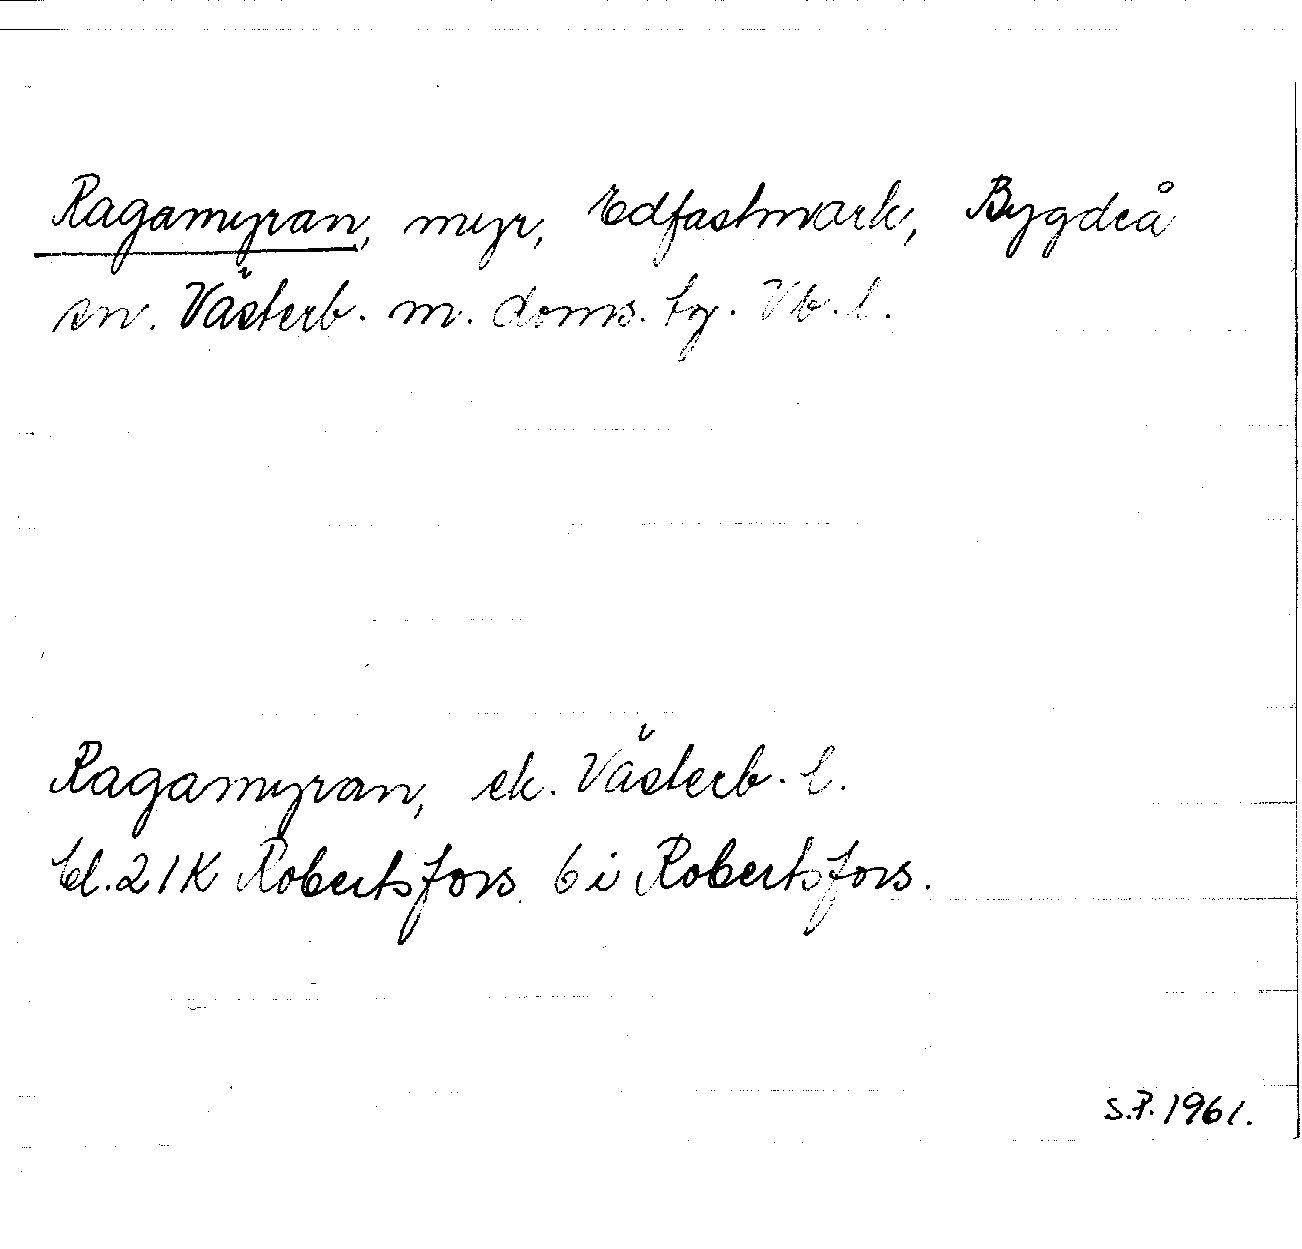 Ragamyran, myr, Edfastmark, Bygdeå
sn. Västerb. m. doms. tg. Vb. l.
Ragamyran, ek. Västerb. l.
bl. 21K Robertsfors 6 i Robertsfors.
S.P. 1961.